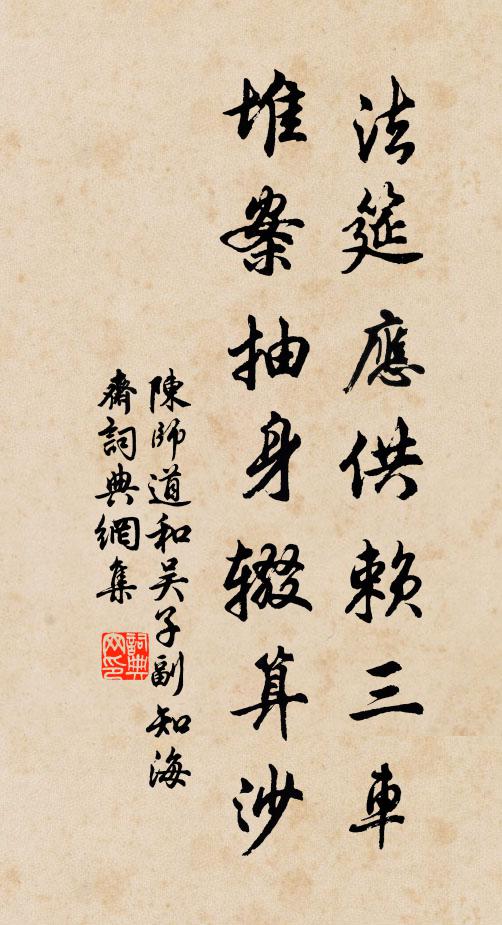 法筵應供賴三車
堆案抽身辍算沙
陳師道和吴子副知海
齋詞典網集
詞典网印